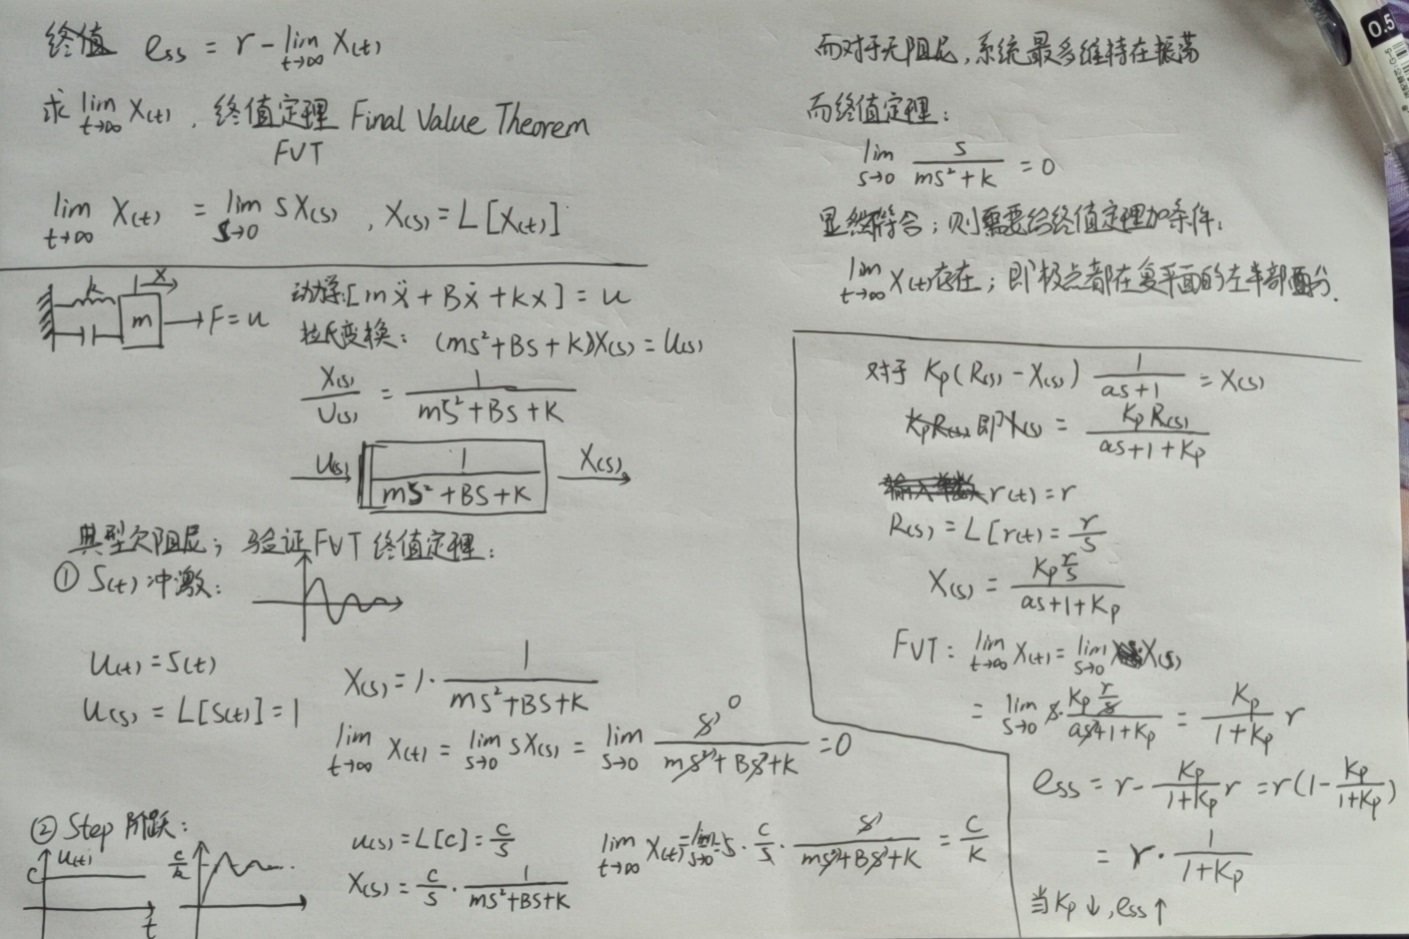 终值 ess = r - lim t→∞ X(t)
求 lim t→∞ X(t) , 终值定理 Final Value Theorem
FVT
lim t→∞ X(t) = lim s→0 SX(s) , X(s) = L[X(t)]
k X m F=u
动力学:[mẍ + Bẋ + kx] = u
拉氏变换: (ms²+Bs+k)X(s) = U(s)
X(s)/U(s) = 1/(ms²+Bs+K)
U(s) 1/(ms²+BS+K) X(s)
典型欠阻尼; 验证FVT 终值定理:
① S(t) 冲激:
U(t) = S(t)
U(s) = L[S(t)] = 1
X(s) = 1· 1/(ms²+BS+K)
lim t→∞ X(t) = lim s→0 SX(s) = lim s→0 S/(ms²+BS+K) = 0
0
② Step 阶跃:
U(t) C t
C/k
U(s) = L[C] = C/S
X(s) = C/S · 1/(ms²+BS+K)
lim t→∞ X(t) = lim s→0 S · C/S · S/(ms²+BS+K) = C/K
而对于无阻尼,系统最多维持在振荡
而终值定理:
lim s→0 S/(ms²+K) = 0
显然不符合;则需要给终值定理加条件:
lim t→∞ X(t)存在;即极点都在复平面的左半部分.
对于 Kp(R(s) - X(s)) 1/(as+1) = X(s)
即X(s) = KpR(s)/(as+1+Kp)
r(t) = r
R(s) = L[r(t) = r/s
X(s) = Kp r/s /(as+1+Kp)
FVT: lim t→∞ X(t) = lim s→0 X(s)
= lim s→0 s· Kp r/s /(as+1+Kp) = Kp/(1+Kp) r
ess = r - Kp/(1+Kp) r = r(1 - Kp/(1+Kp))
= r · 1/(1+Kp)
当Kp↓, ess↑
0.5